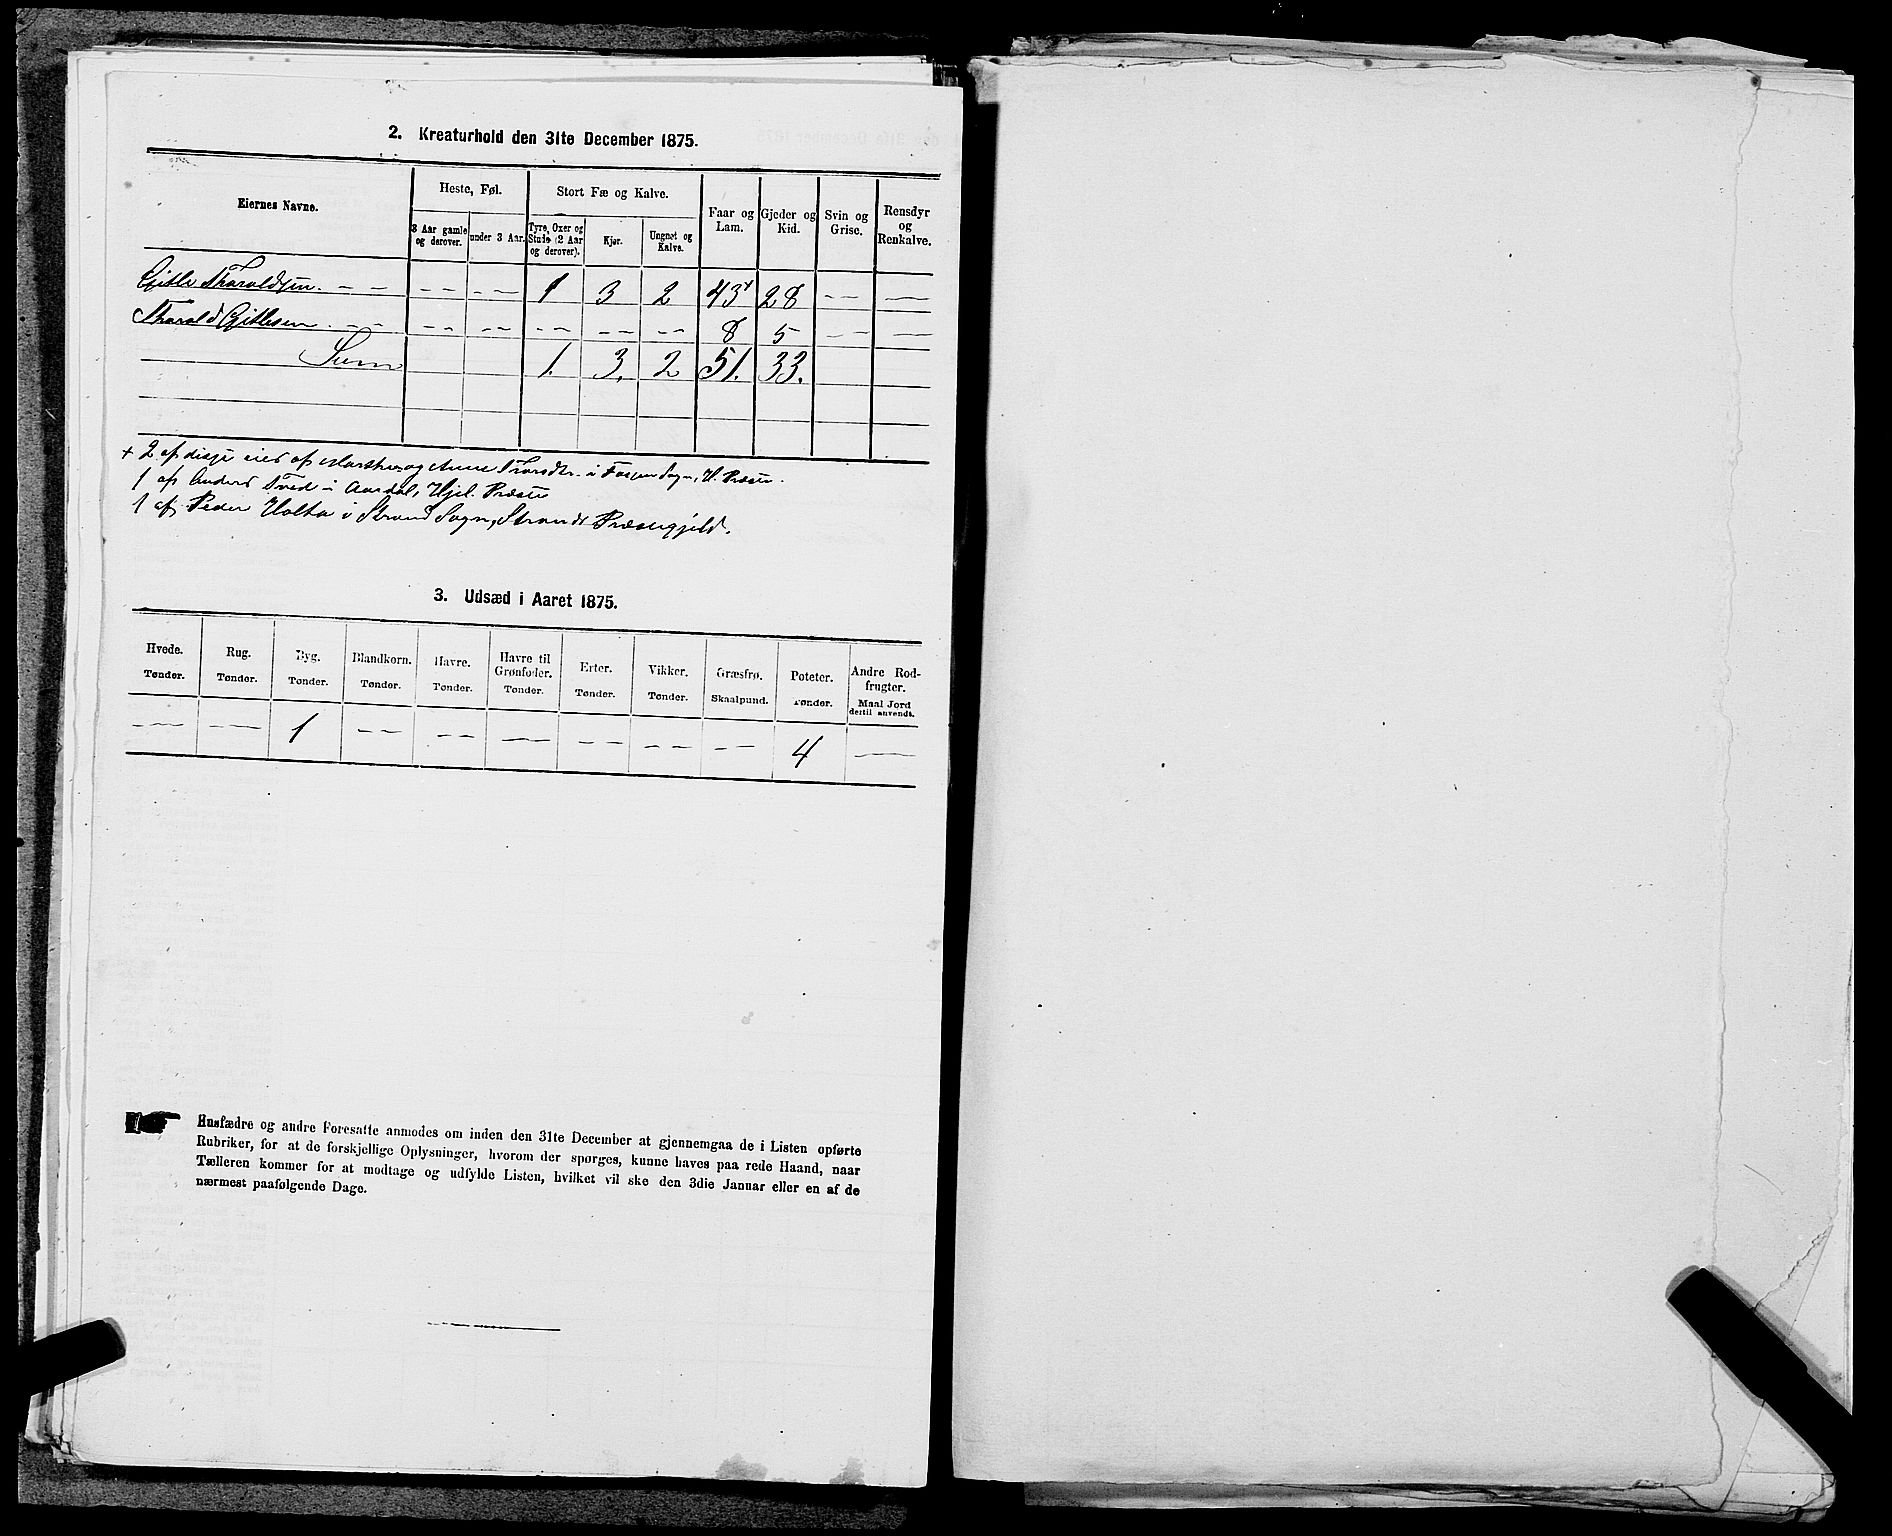 2. Kreaturhold den 31te December 1875.
Eiernes Navne.
Heste, Føl.
Stort Fæ og Kalve.
Faar og Lam.
Gjeder og Kid.
Svin og Grise.
Rensdyr og Renkalve.
3 Aar gamle og derover.
under 3 Aar.
Tyre, Oxer og Stude (2 Aar og derover).
Kjør.
Ungnøt og Kalve.
Gitle Tharaldsen. – – – – – – 1 3 2 43+ 28 – – —
Tharald Gitlesen – – – – – – – – – – – – 8 5 – – —
Sum 1. 3. 2 51. 33.
+ 2 af disse eies af Marthe og Anne i Sogn, H. Præst.
1 af Anders Tved i Aardal, Hjel. Præst
1 af Peder Holta i Strand Sogn, Strands Præstegjeld.
3. Udsæd i Aaret 1875.
Hvede. Tønder.
Rug. Tønder.
Byg. Tønder.
Blandkorn. Tønder.
Havre. Tønder.
Havre til Grønfoder. Tønder.
Erter. Tønder.
Vikker. Tønder.
Græsfrø. Skaalpund.
Poteter. Tønder.
Andre Rodfrugter. Maal Jord dertil anvendt.
– – – – 1 – – – – — – – – – – – 4 —
Husfædre og andre Foresatte anmodes om inden den 31te December at gjennemgaa de i Listen opførte
Rubriker, for at de forskjellige Oplysninger, hvorom der spørges, kunne haves paa rede Haand, naar
Tælleren kommer for at modtage og udfylde Listen, hvilket vil ske den 3die Januar eller en af de
nærmest paafølgende Dage.